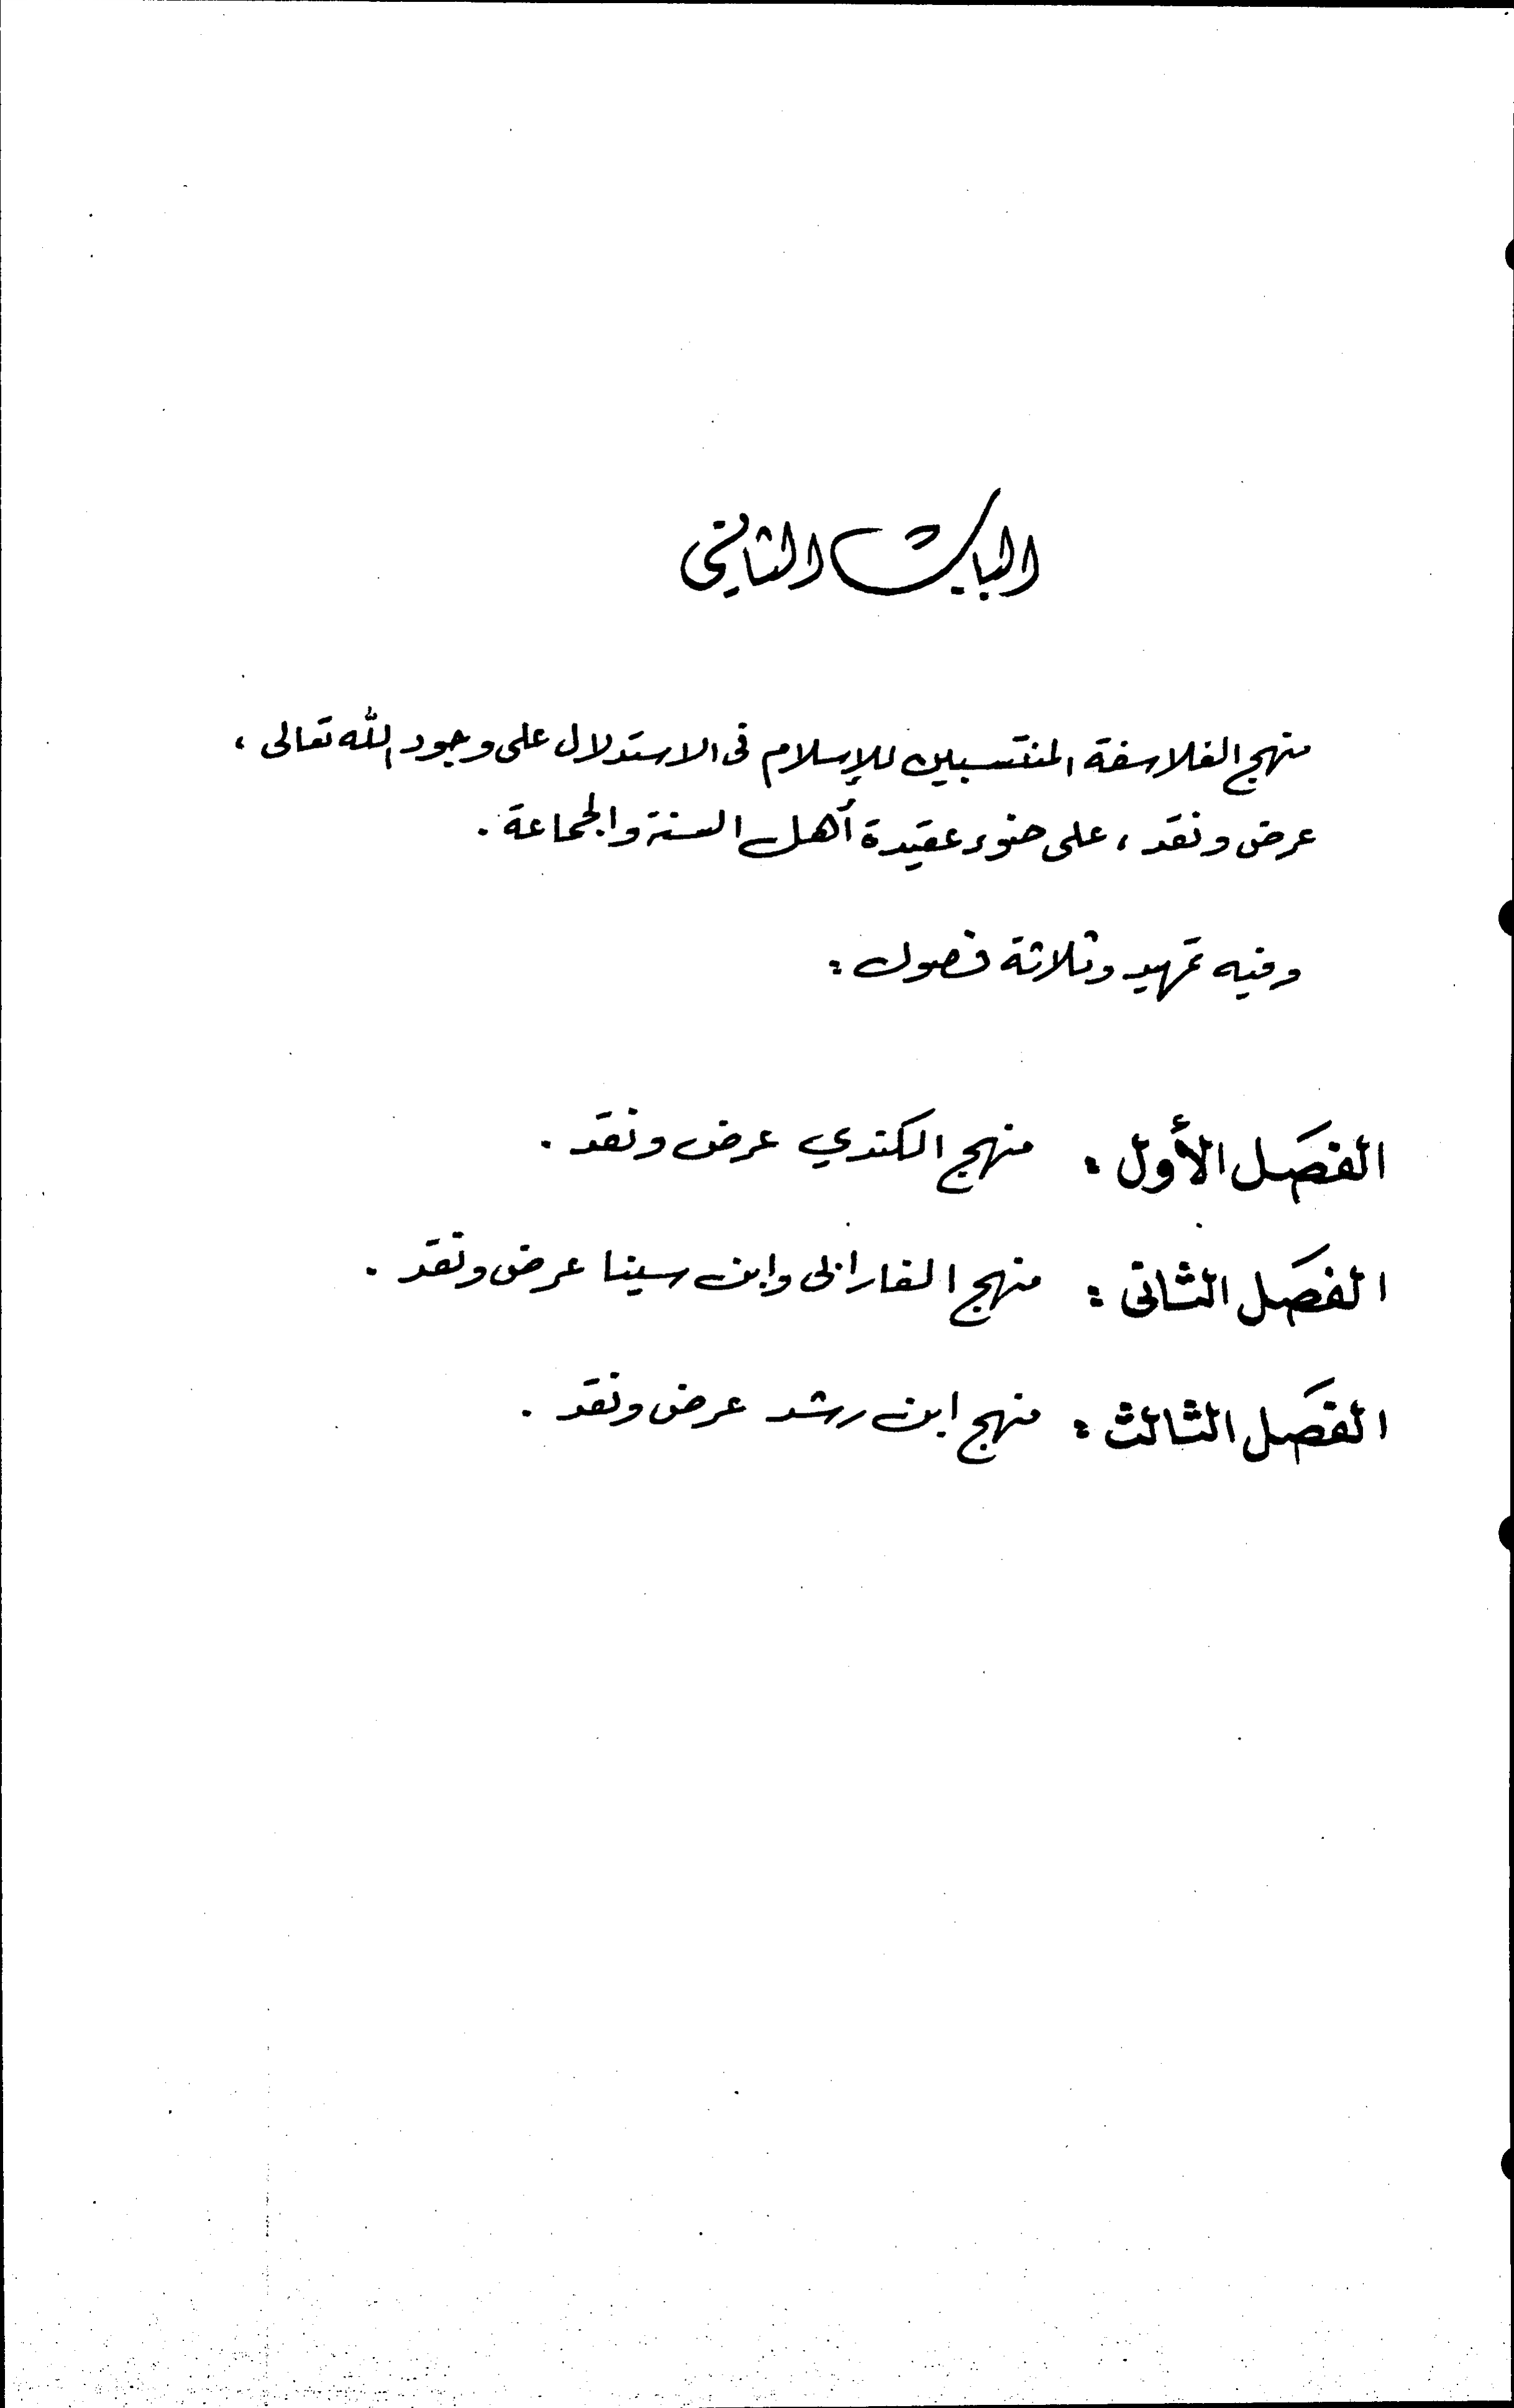 الباب الثاني
منهج الفلاسفة المنتسبين للإسلام فى الاستدلال على وجود الله تعالى ،
عرض ونقد ، على ضوء عقيدة أهل السنة والجماعة .
وفيه تمهيد وثلاثة فصول :
الفصَل الأول : منهج الكندي عرض ونقد .
الفصَل الثانى : منهج الفارابى وابن سينا عرض ونقد .
الفصَل الثالث : منهج ابن رشد عرض ونقد .